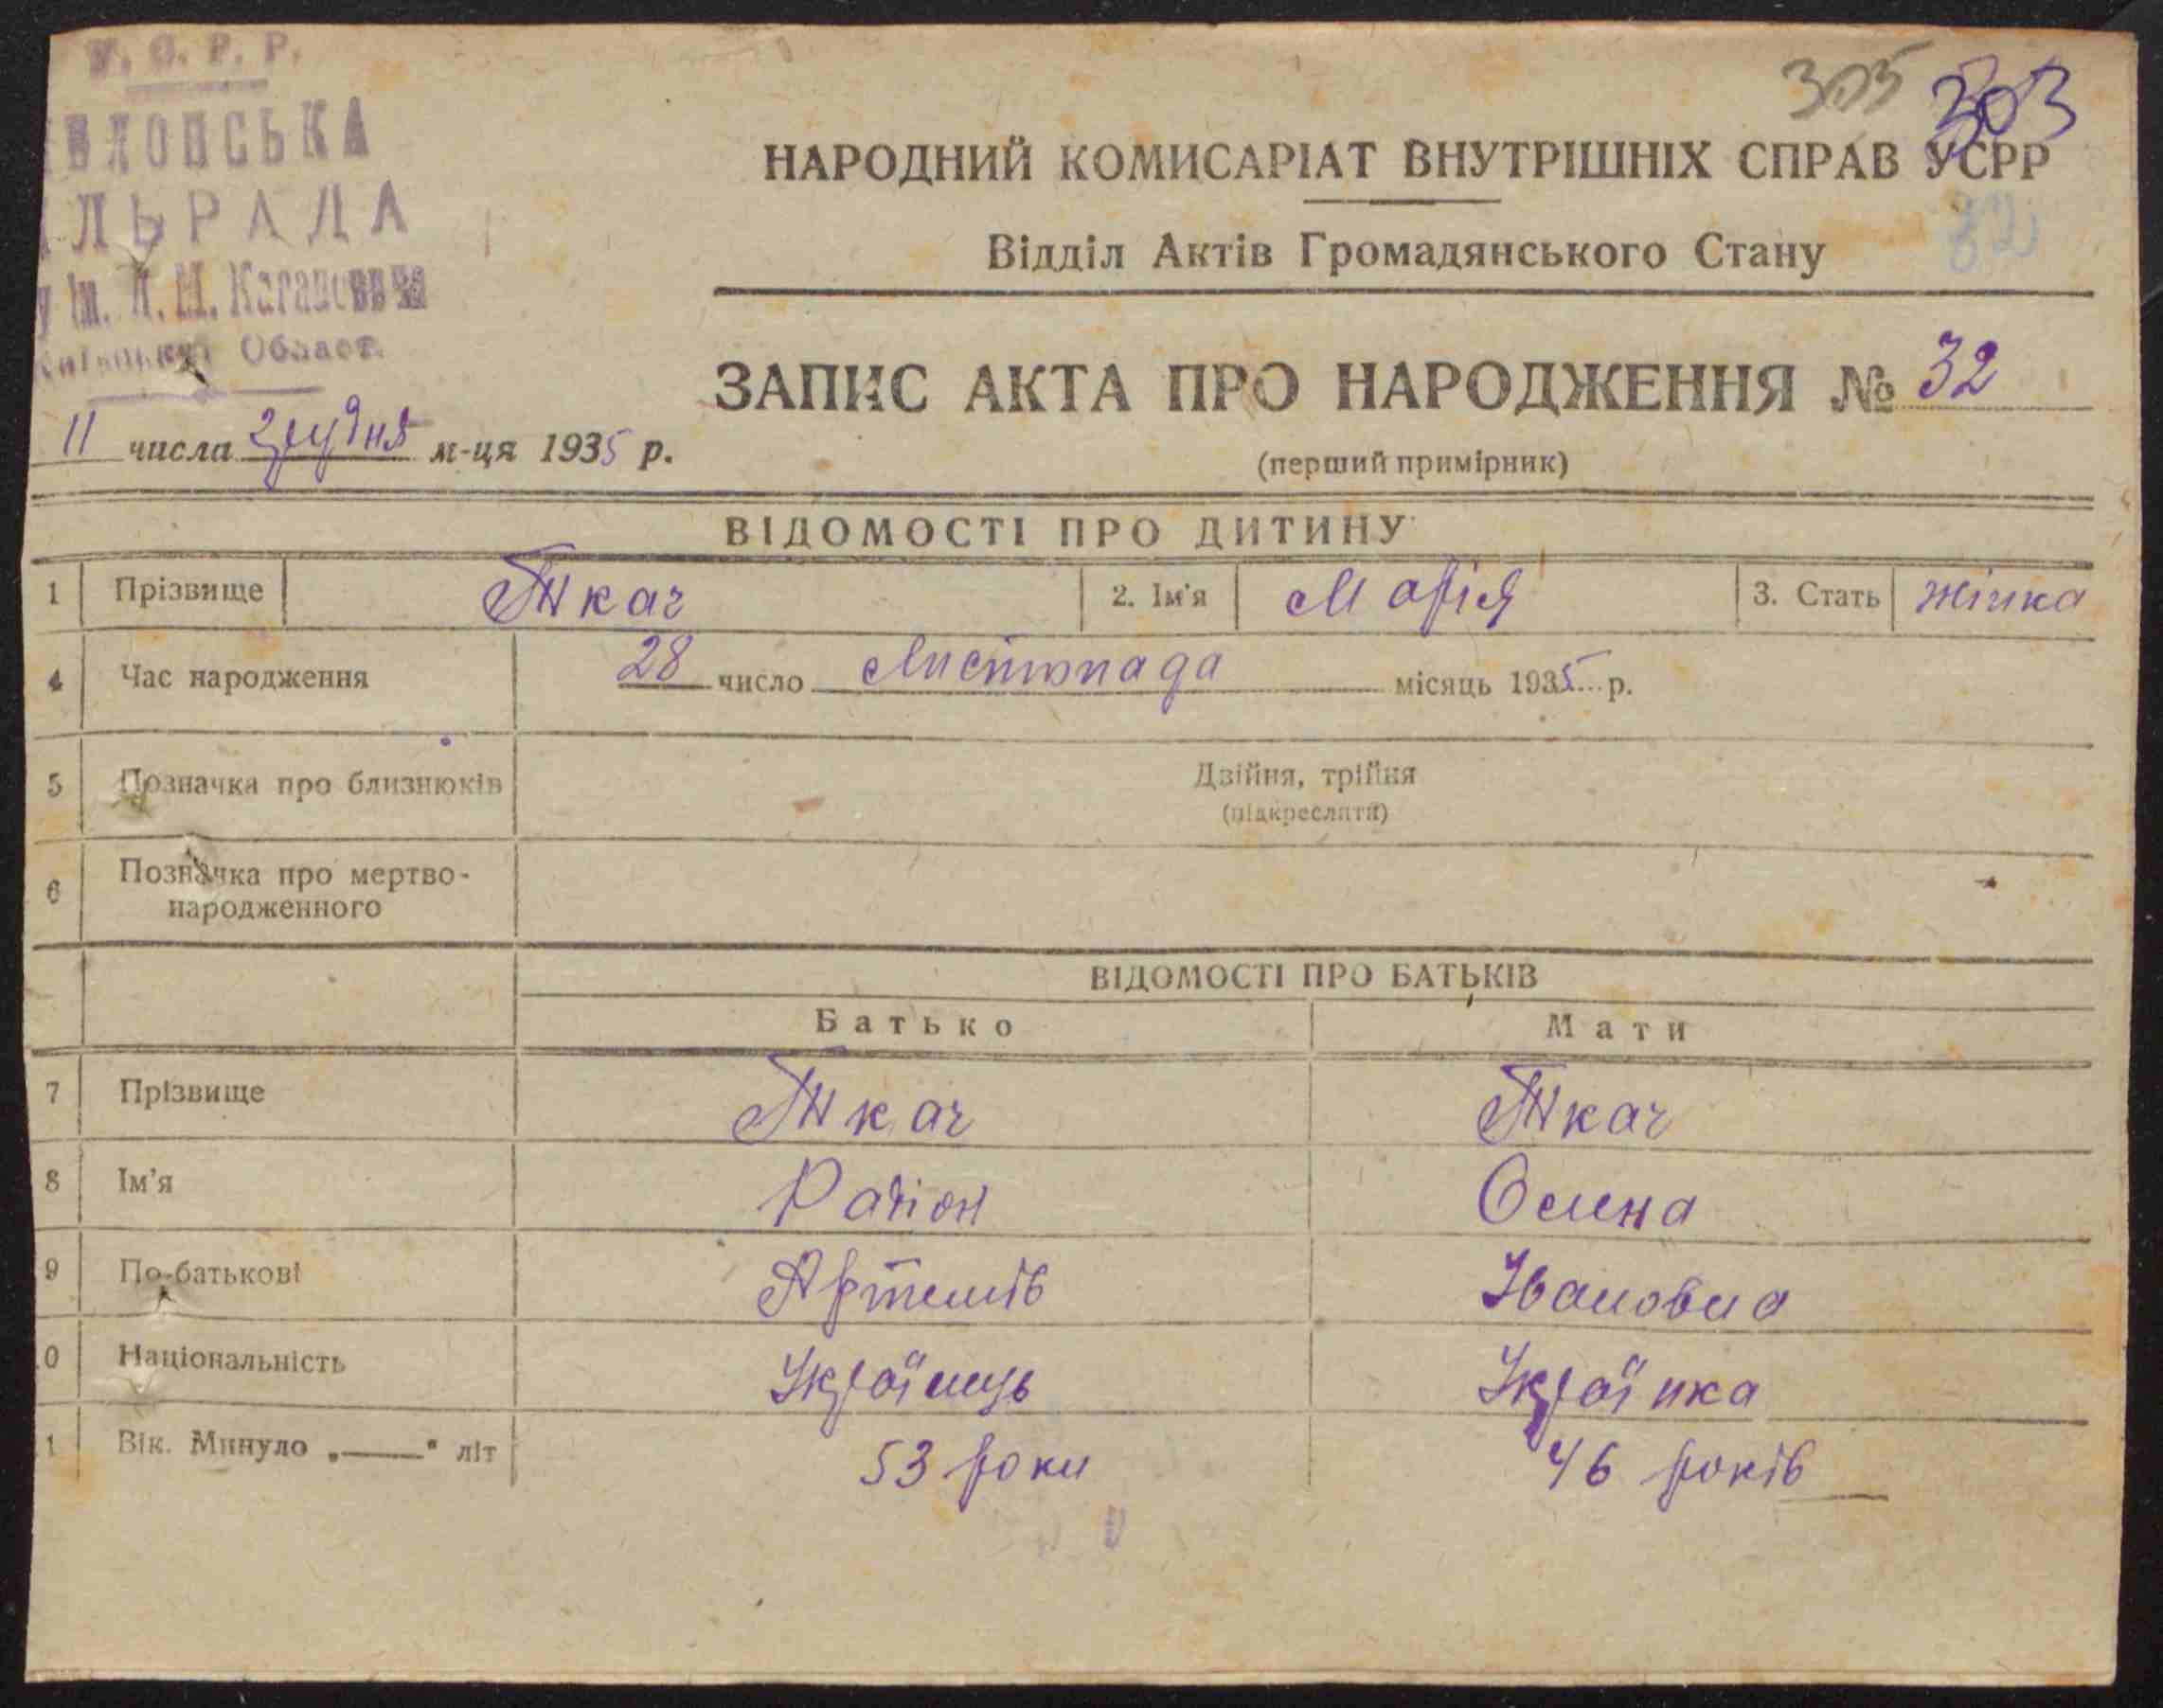 У. С. Р. Р.
ВЛОНСЬКА
ЛЬРАДА
у ім. Л. М. Кагановича
Області
305 303
НАРОДНИЙ КОМИСАРІАТ ВНУТРІШНІХ СПРАВ УСРР
Відділ Актів Громадянського Стану
ЗАПИС АКТА ПРО НАРОДЖЕННЯ № 32
11 числа грудня м-ця 1935 р.
(перший примірник)
ВІДОМОСТІ ПРО ДИТИНУ
1 Прізвище Ткач 2. Ім'я Марія 3. Стать жінка
4 Час народження 28 число Листопада місяць 1935 р.
5 Позначка про близнюків Двійня, трійня
(підкреслити)
6 Позначка про мертво-
народженного
ВІДОМОСТІ ПРО БАТЬКІВ
Батько Мати
7 Прізвище Ткач Ткач
8 Ім'я Олена
9 По-батькові Артемів Івановна
0 Національність Українець Українка
1 Вік. Минуло „——" літ 53 роки 46 років